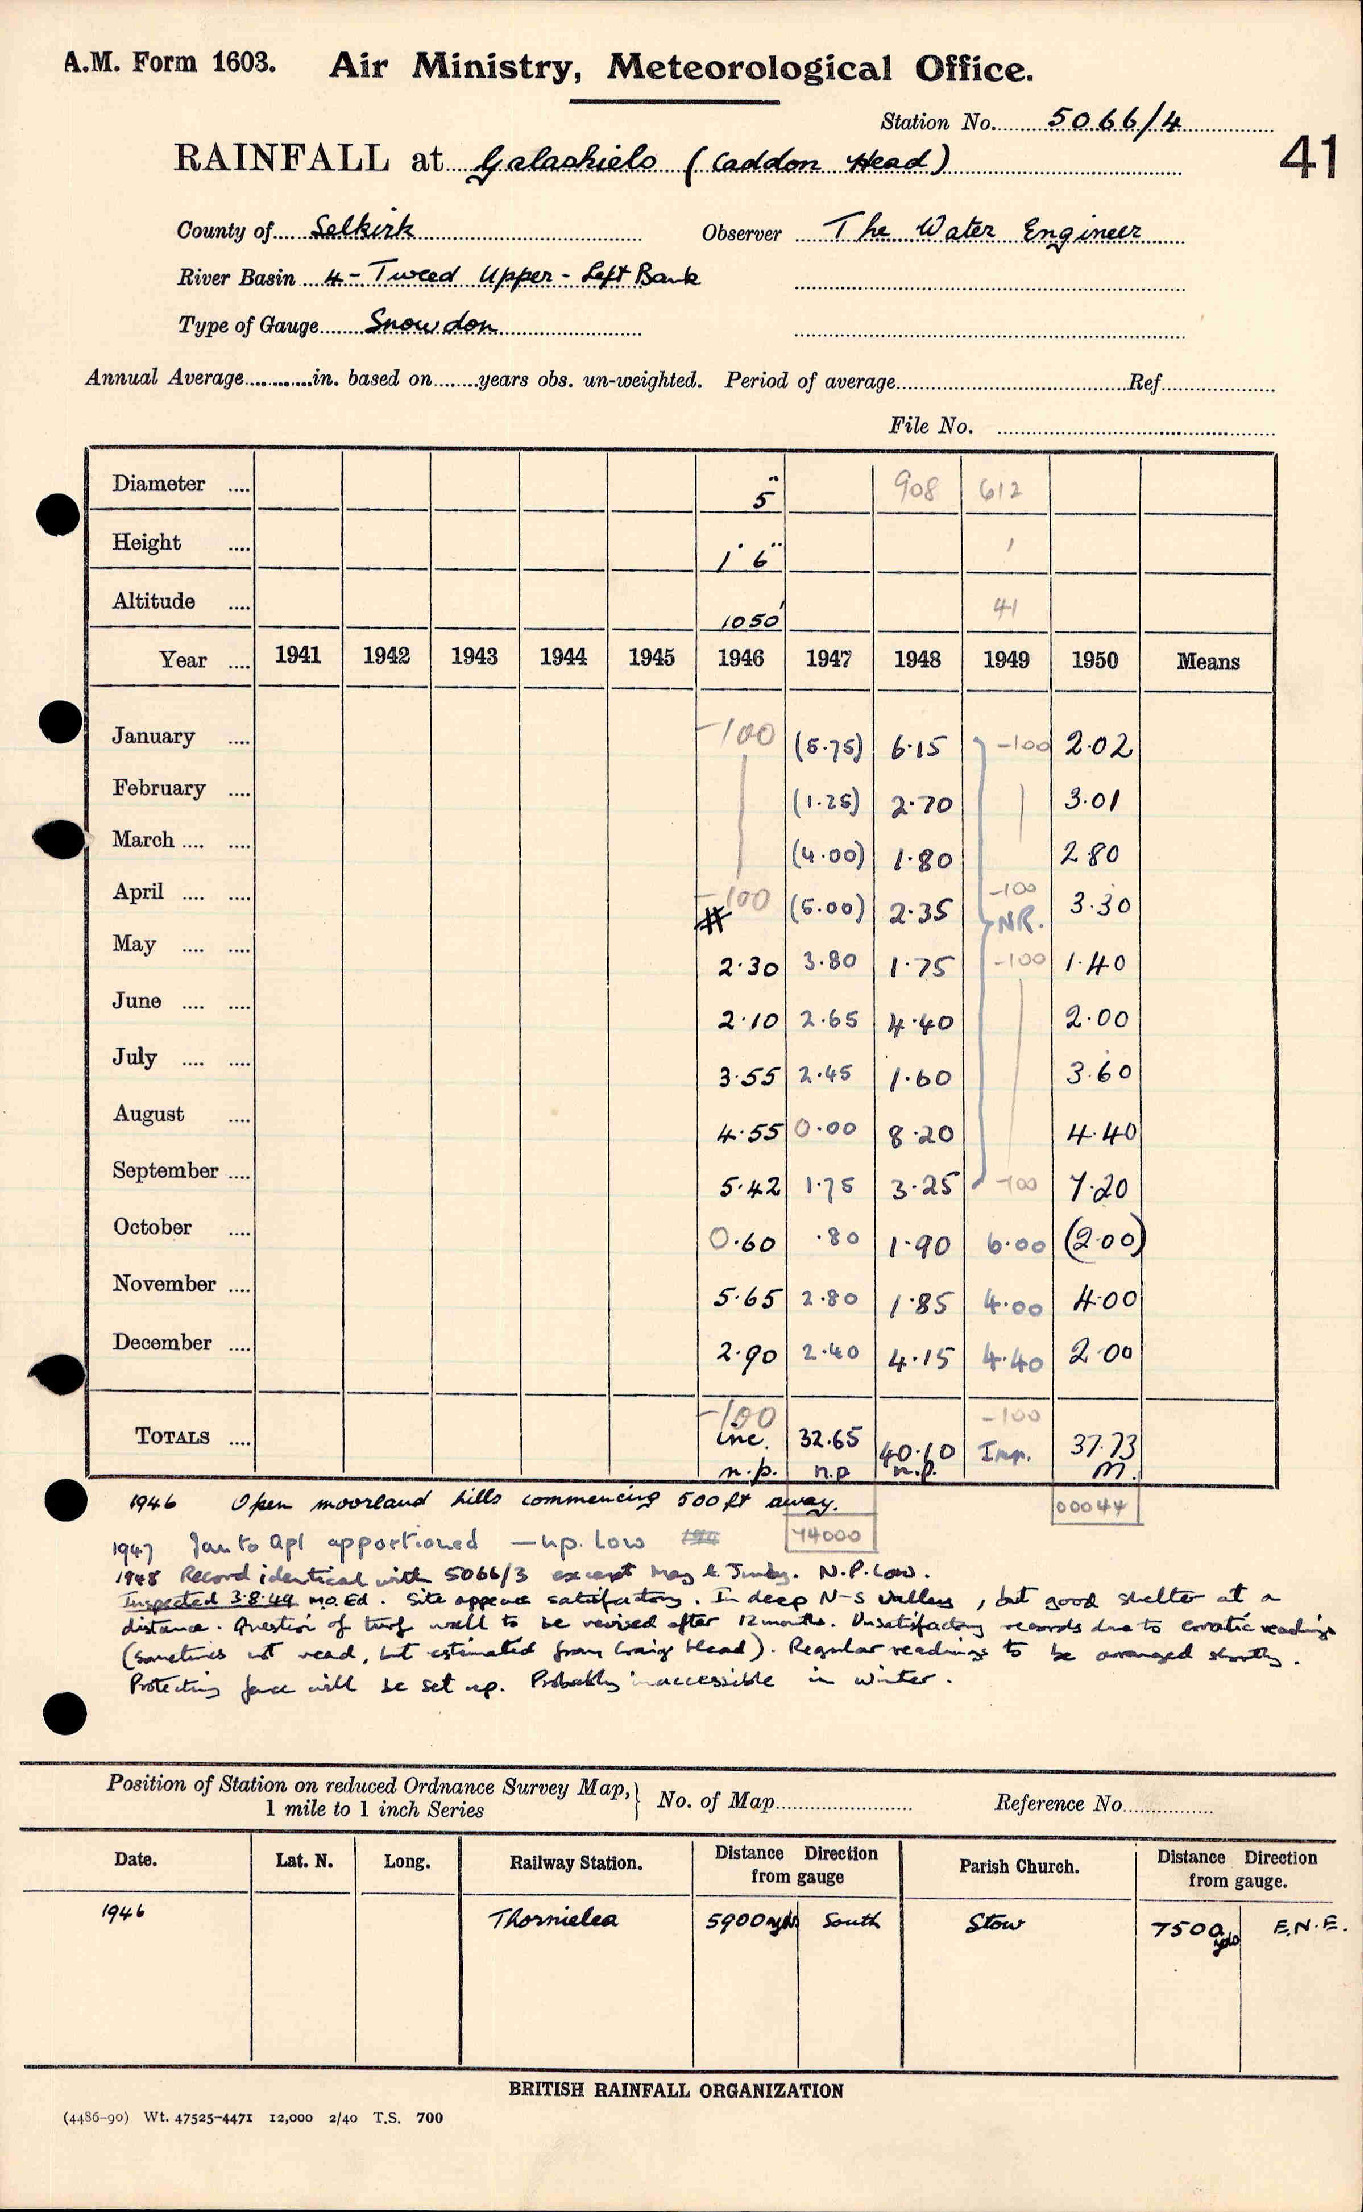 A.M. Form 1603. Air Ministry, Meteorological Office.
Station No. 5066/4
41
RAINFALL at Galashiels (Caddon Head)
County of Selkirk Observer The Water Engineer
River Basin 4 - Tweed Upper - Left Bank
Type of Gauge Snowdon
Annual Average............in. based on........years obs. un-weighted. Period of average............Ref............
File No. ............
Diameter .... 5" 908 612
Height .... 1' 6" 1
Altitude .... 1050' 41
Year .... 1941 1942 1943 1944 1945 1946 1947 1948 1949 1950 Means
January .... -100 (5.75) 6.15 -100 2.02
February .... (1.25) 2.70 3.01
March .... .... (4.00) 1.80 2.80
April .... .... -100 (5.00) 2.35 -100 NR. 3.30
May .... .... 2.30 3.80 1.75 -100 1.40
June .... .... 2.10 2.65 4.40 2.00
July .... .... 3.55 2.45 1.60 3.60
August .... 4.55 0.00 8.20 4.40
September .... 5.42 1.75 3.25 -100 7.20
October .... 0.60 .80 1.90 6.00 (2.00)
November .... 5.65 2.80 1.85 4.00 4.00
December .... 2.90 2.40 4.15 4.40 2.00
-100 -100
TOTALS .... Inc. 32.65 40.10 Imp. 37.73
n.p. n.p n.p. m.
1946 Open moorland hills commencing 500 ft away. 00044
1947 Jan to Apl apportioned — n.p. Low 74000
1948 Record identical with 5066/3 except May & July. N.P. Low.
Inspected 3.8.49 M.O. Ed. Site appears satisfactory. In deep N-S valley, but good shelter at a
distance. Question of turf wall to be revised after 12 months. Unsatisfactory records due to erratic readings
(sometimes not read, but estimated from Craig Head). Regular readings to be arranged shortly.
Protecting fence will be set up. Probably inaccessible in winter.
Position of Station on reduced Ordnance Survey Map, 1 mile to 1 inch Series } No. of Map............ Reference No............
Date. Lat. N. Long. Railway Station. Distance Direction from gauge Parish Church. Distance Direction from gauge.
1946 Thornielea 5900 yds South Stow 7500 yds E.N.E.
BRITISH RAINFALL ORGANIZATION
(4486-90) Wt. 47525-4471 12,000 2/40 T.S. 700